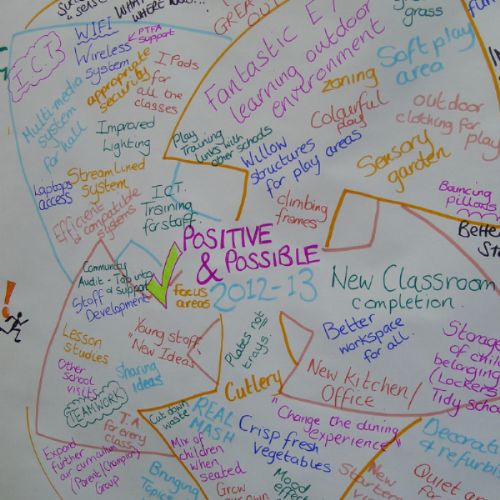 I.C.T.
WIFI
Wireless
System
PTFA
support
appropriate
security
IPads
for
all the
classes
Multi-media
system
for hall
Improved
Lighting
Laptops
access
Streamlined
system
Efficient
& compatible
systems
I.C.T.
Training
for staff.
GREAT
Fantastic
learning outdoor
environment
grass
zoning
Soft play
area
Colourful
play
outdoor
clothing for
play
Play
Training
links with
other schools
Willow
structures
for play areas
Sensory
garden
climbing
frames
Bouncing
pillars
Better
POSITIVE
& POSSIBLE
focus
areas
2012-13
Community
Audit - Tap into
Staff & support
Development
Lesson
studies
Young staff
New Ideas
Other
school
visits
Sharing
ideas
TEAMWORK
T.A.
for every
class
Expand
further
our curriculum
(Parent/Champion)
Group
Bringing
Topics
Plates not
trays.
Cutlery
Cut down
waste
REAL
MASH
Mix of
children
when
seated
Crisp fresh
vegetables
"Change the dining
experience"
Grow
our own
Mood
effect
New Classroom
completion.
Better
workspace
for all.
New Kitchen/
Office
Storage
of child
belonging
(Lockers)
Tidy school
Decorating
& refurb
New
Starters
Quiet